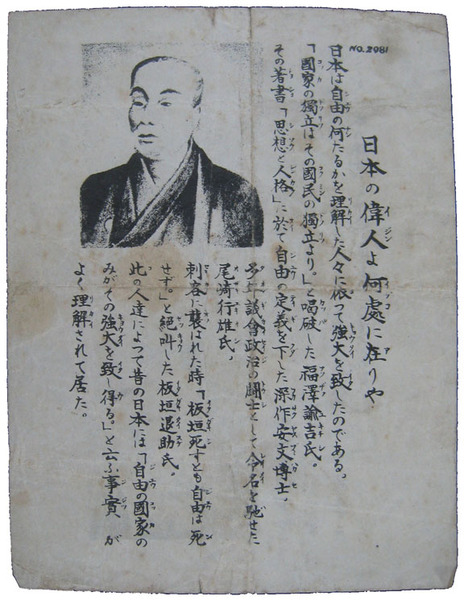 NO. 2981
日本の偉人よ何處に在りや
日本は自由の何たるかを理解した人々に依って強大を致したのである。
「國家の獨立はその國民の獨立より。」と喝破した福澤諭吉氏。
その著書「思想と人格」に於て自由の定義を下した深作安文博士。
多年議會政治の闘士として令名を馳せた
尾崎行雄氏。
刺客に襲はれた時「板垣死すとも自由は死
せず。」と絶叫した板垣退助氏。
此の人達によって昔の日本には「自由の國家の
みがその強大を致し得る。」と云ふ事實が
よく理解されて居た。